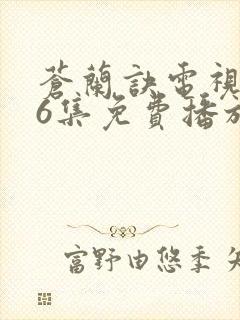 蒼蘭訣電視
6集免費播放
富野由悠季 矢